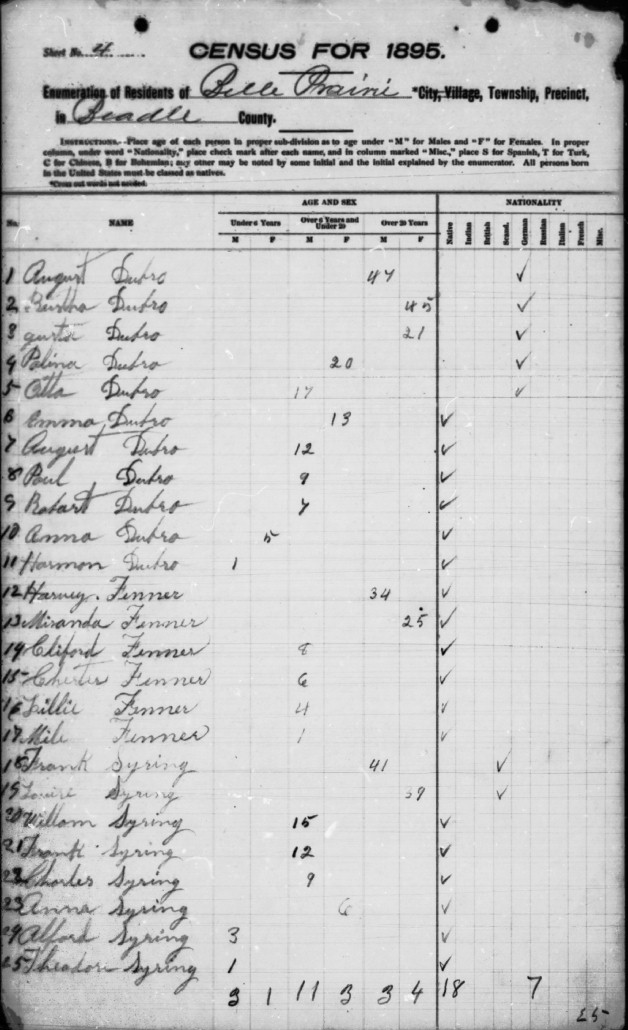 Sheet No. 4
CENSUS FOR 1895.
Enumeration of Residents of Belle Prairie *City, Village, Township, Precinct,
in Beadle County.
INSTRUCTIONS.--Place age of each person in proper sub-division as to age under "M" for Males and "F" for Females. In proper
column, under word "Nationality," place check mark after each name, and in column marked "Misc.," place S for Spanish, T for Turk,
C for Chinese, B for Bohemian; any other may be noted by some initial and the initial explained by the enumerator. All persons born
in the United States must be classed as natives.
*Cross out words not needed.
AGE AND SEX NATIONALITY
No. NAME Under 6 Years Over 6 Years and Under 20 Over 20 Years Native Indian British Scand. German Russian Italian French Misc.
M F M F M F
1 August Dubro 47 ✓
2 Bertha Dubro 45 ✓
3 gusta Dubro 21 ✓
4 Polina Dubro 20 ✓
5 Otto Dubro 17 ✓
6 Emma Dubro 13 ✓
7 August Dubro 12 ✓
8 Paul Dubro 9 ✓
9 Robart Dubro 7 ✓
10 Anna Dubro 5 ✓
11 Harmon Dubro 1 ✓
12 Harvey Fenner 34 ✓
13 Miranda Fenner 25 ✓
14 Cliford Fenner 8 ✓
15 Chester Fenner 6 ✓
16 Lillie Fenner 4 ✓
17 Mile Fenner 1 ✓
18 Frank Syring 41 ✓
19 Louise Syring 39 ✓
20 Willam Syring 15 ✓
21 Frank Syring 12 ✓
22 Charles Syring 9 ✓
23 Anna Syring 6 ✓
24 Alford Syring 3 ✓
25 Theodore Syring 1 ✓
3 1 11 3 3 4 18 7
25